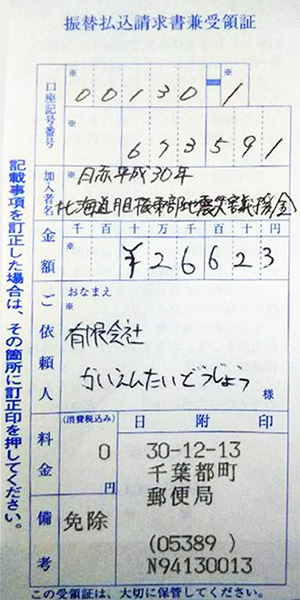 振替払込請求書兼受領証
口座記号番号
※
00130
※
1
※
673591
加入者名
※
日赤平成30年
北海道胆振東部地震災害義援金
金額
千百十万千百十円
※
¥26623
ご依頼人
おなまえ
※
有限会社
かいえんたいどうじょう
様
料金
(消費税込み)
0
円
備考
免除
日附印
30-12-13
千葉都町
郵便局
(05389 )
N94130013
記載事項を訂正した場合は、その箇所に訂正印を押してください。
この受領証は、大切に保管してください。